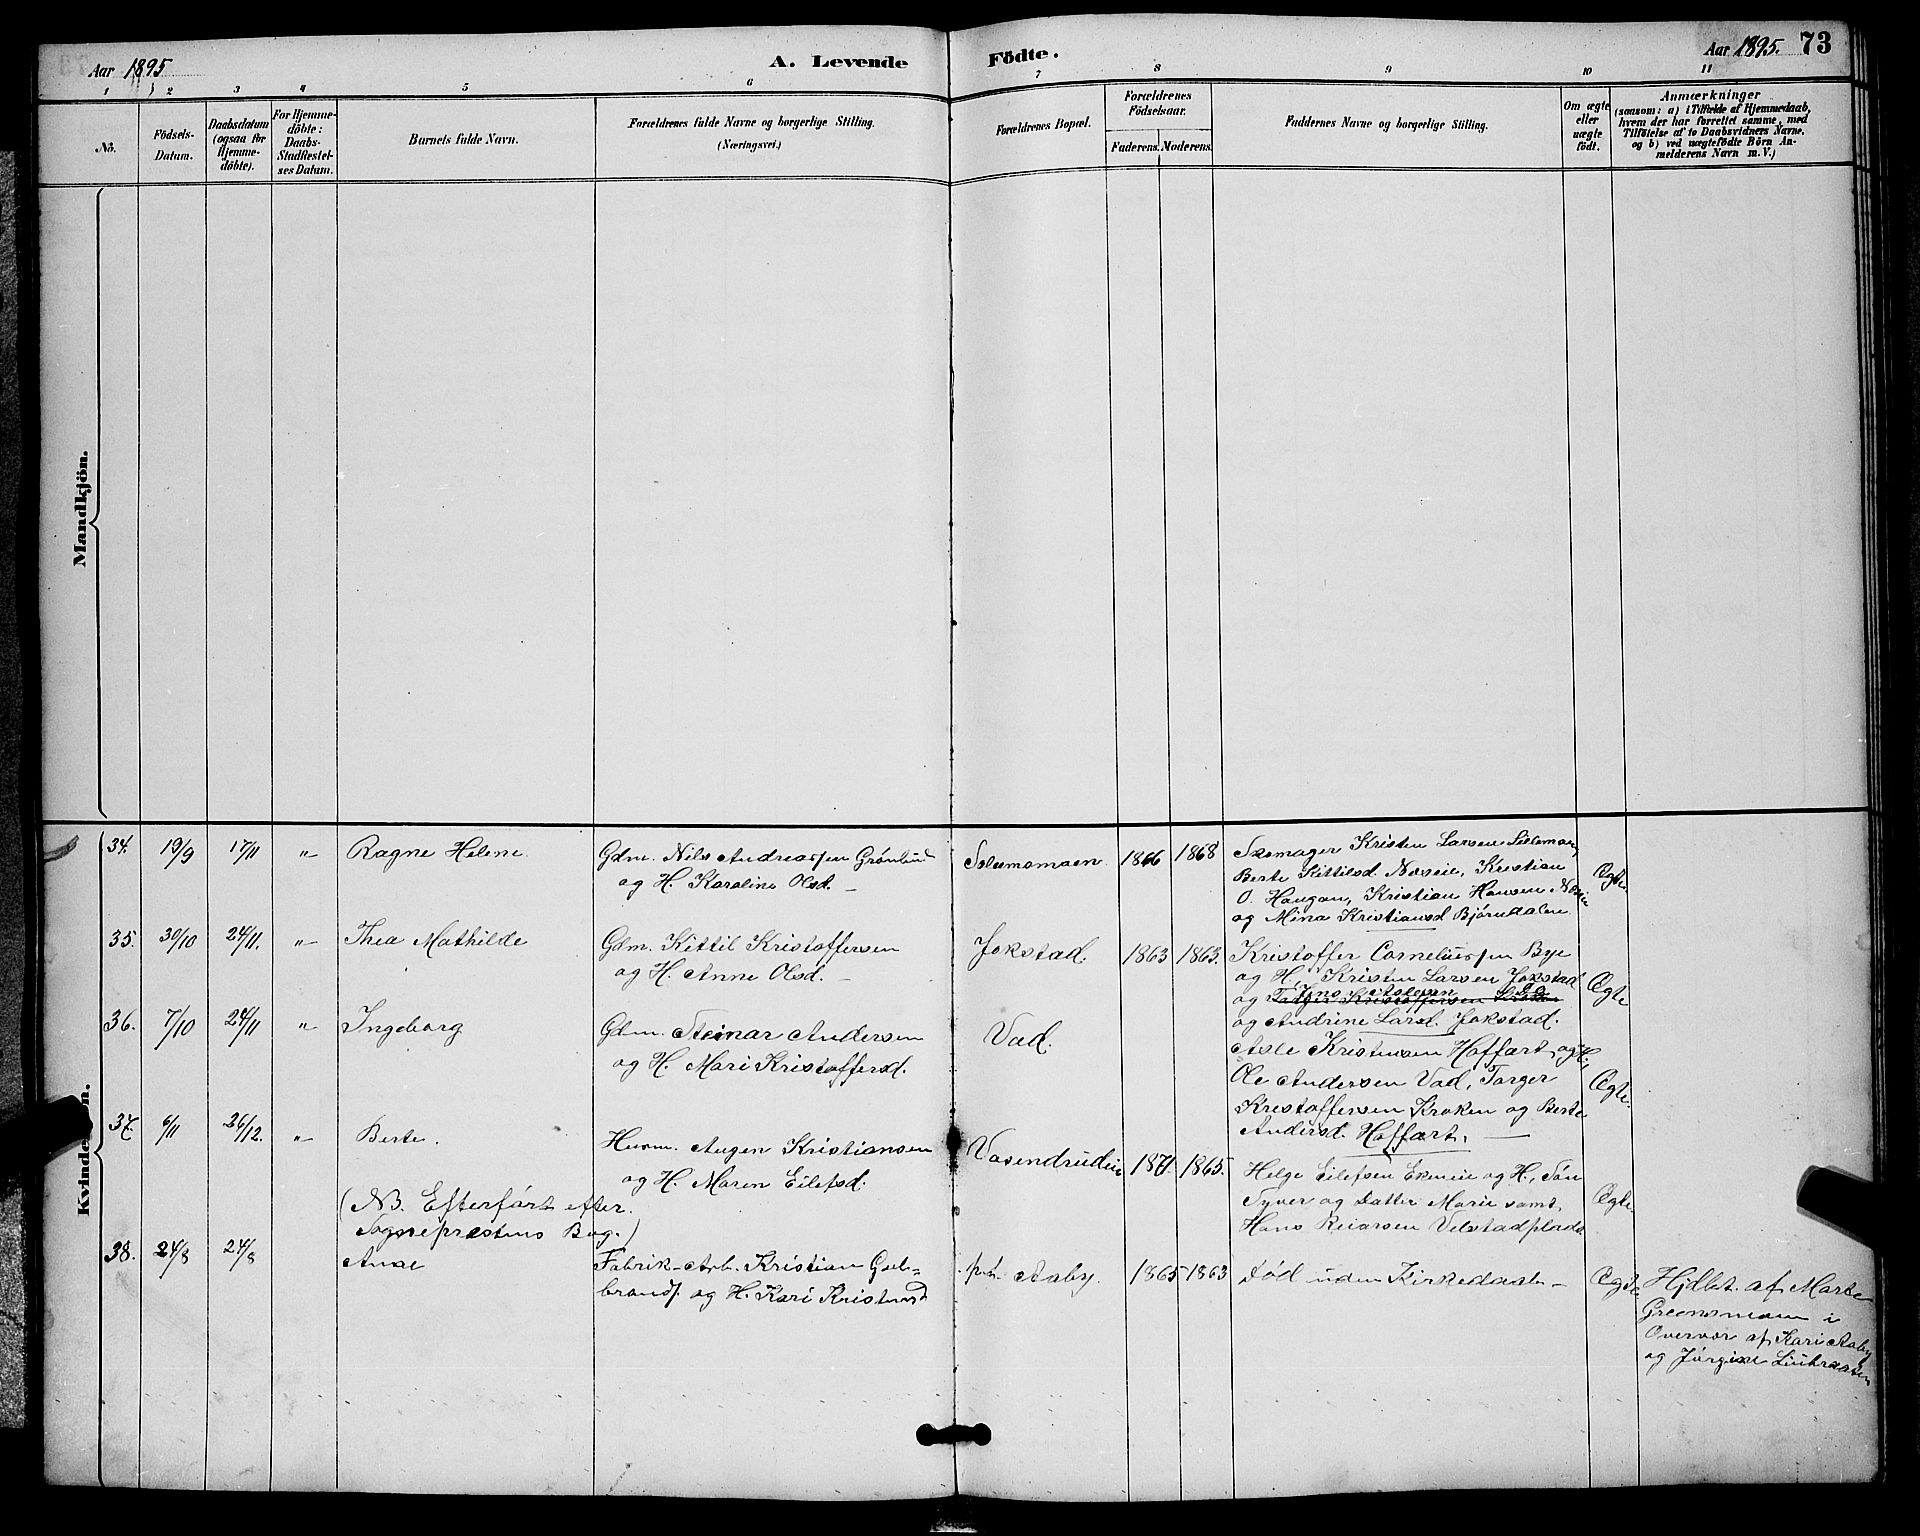 Aar 1895
A. Levende
Födte.
Aar 1895. 73
1 2 3 4 5 6 7 8 9 10 11
No.
Födsels-Datum.
Daabsdatum (ogsaa for Hjemmedöbte).
For Hjemmedöbte: Daabs-Stadfestelses Datum.
Barnets fulde Navn.
Forældrenes fulde Navne og borgerlige Stilling.
(Næringsvei.)
Forældrenes Bopæl.
Forældrenes Födselsaar.
Faderens. Moderens.
Faddernes Navne og borgerlige Stilling.
Om ægte eller uægte födt.
Anmærkninger
(saasom: a) i Tilfælde af Hjemmedaab,
hvem der har forrettet samme, med
Tilföielse af to Daabsvidners Navne,
og b) ved uægtefödte Börn An-
melderens Navn m. V.)
Mandkjön.
Kvindekjön.
34. 19/9 17/11 " Ragne Helene. Gdm. Nils Andreassen Grønlund
og H. Karoline Olsd. –
Solumsmoen. 1866 1868
Skomager Kristen Larsen
Berte Kittilsd. Kristian
O. Haugan, Kristian Hansen
og Mina Kristiansd Bjørndalen
Ægte.
35. 30/10 24/11. " Thea Mathilde Gdm. Kittil Kristoffersen
og H. Anne Olsd. –
Jokstad. 1863 1863.
Kristoffer Corneliussen Bye
og H., Kristen Larsen Jokstad
og
og Andrine Larsd. Jokstad.
Ægte
36. 7/10 24/11 " Ingeborg Gdm. Steinar Andersen
og H. Mari Kristoffersd.
Vad.
Asle Kristensen Haffart, og H.,
Ole Andersen Vad, Torger
Kristoffersen Kroken og Berte
Andersd. Haffart. –
Ægte.
37. 6/11 26/12. " Berte. Husm. Augen Kristiansen
og H. Maren Eilefsd.
Vasendrudeie 1871. 1865.
Helge Eilefsen Ekeneie og H., Søn
Syver og Datter Marie samt
Hans Reiarsen Velstadplads
Ægte.
(NB. Efterført efter
Sogneprestens Bog.)
38. 24/8 24/8 Anne Fabrik-Arb. Kristian Gul-
brands. og H. Kari Kristensd
Aaby. 1865 1863 Død uden Kirkedaab – Ægte
Hjdbt. af Marte
i
Overvær af Kari Aaby
og Jørgine